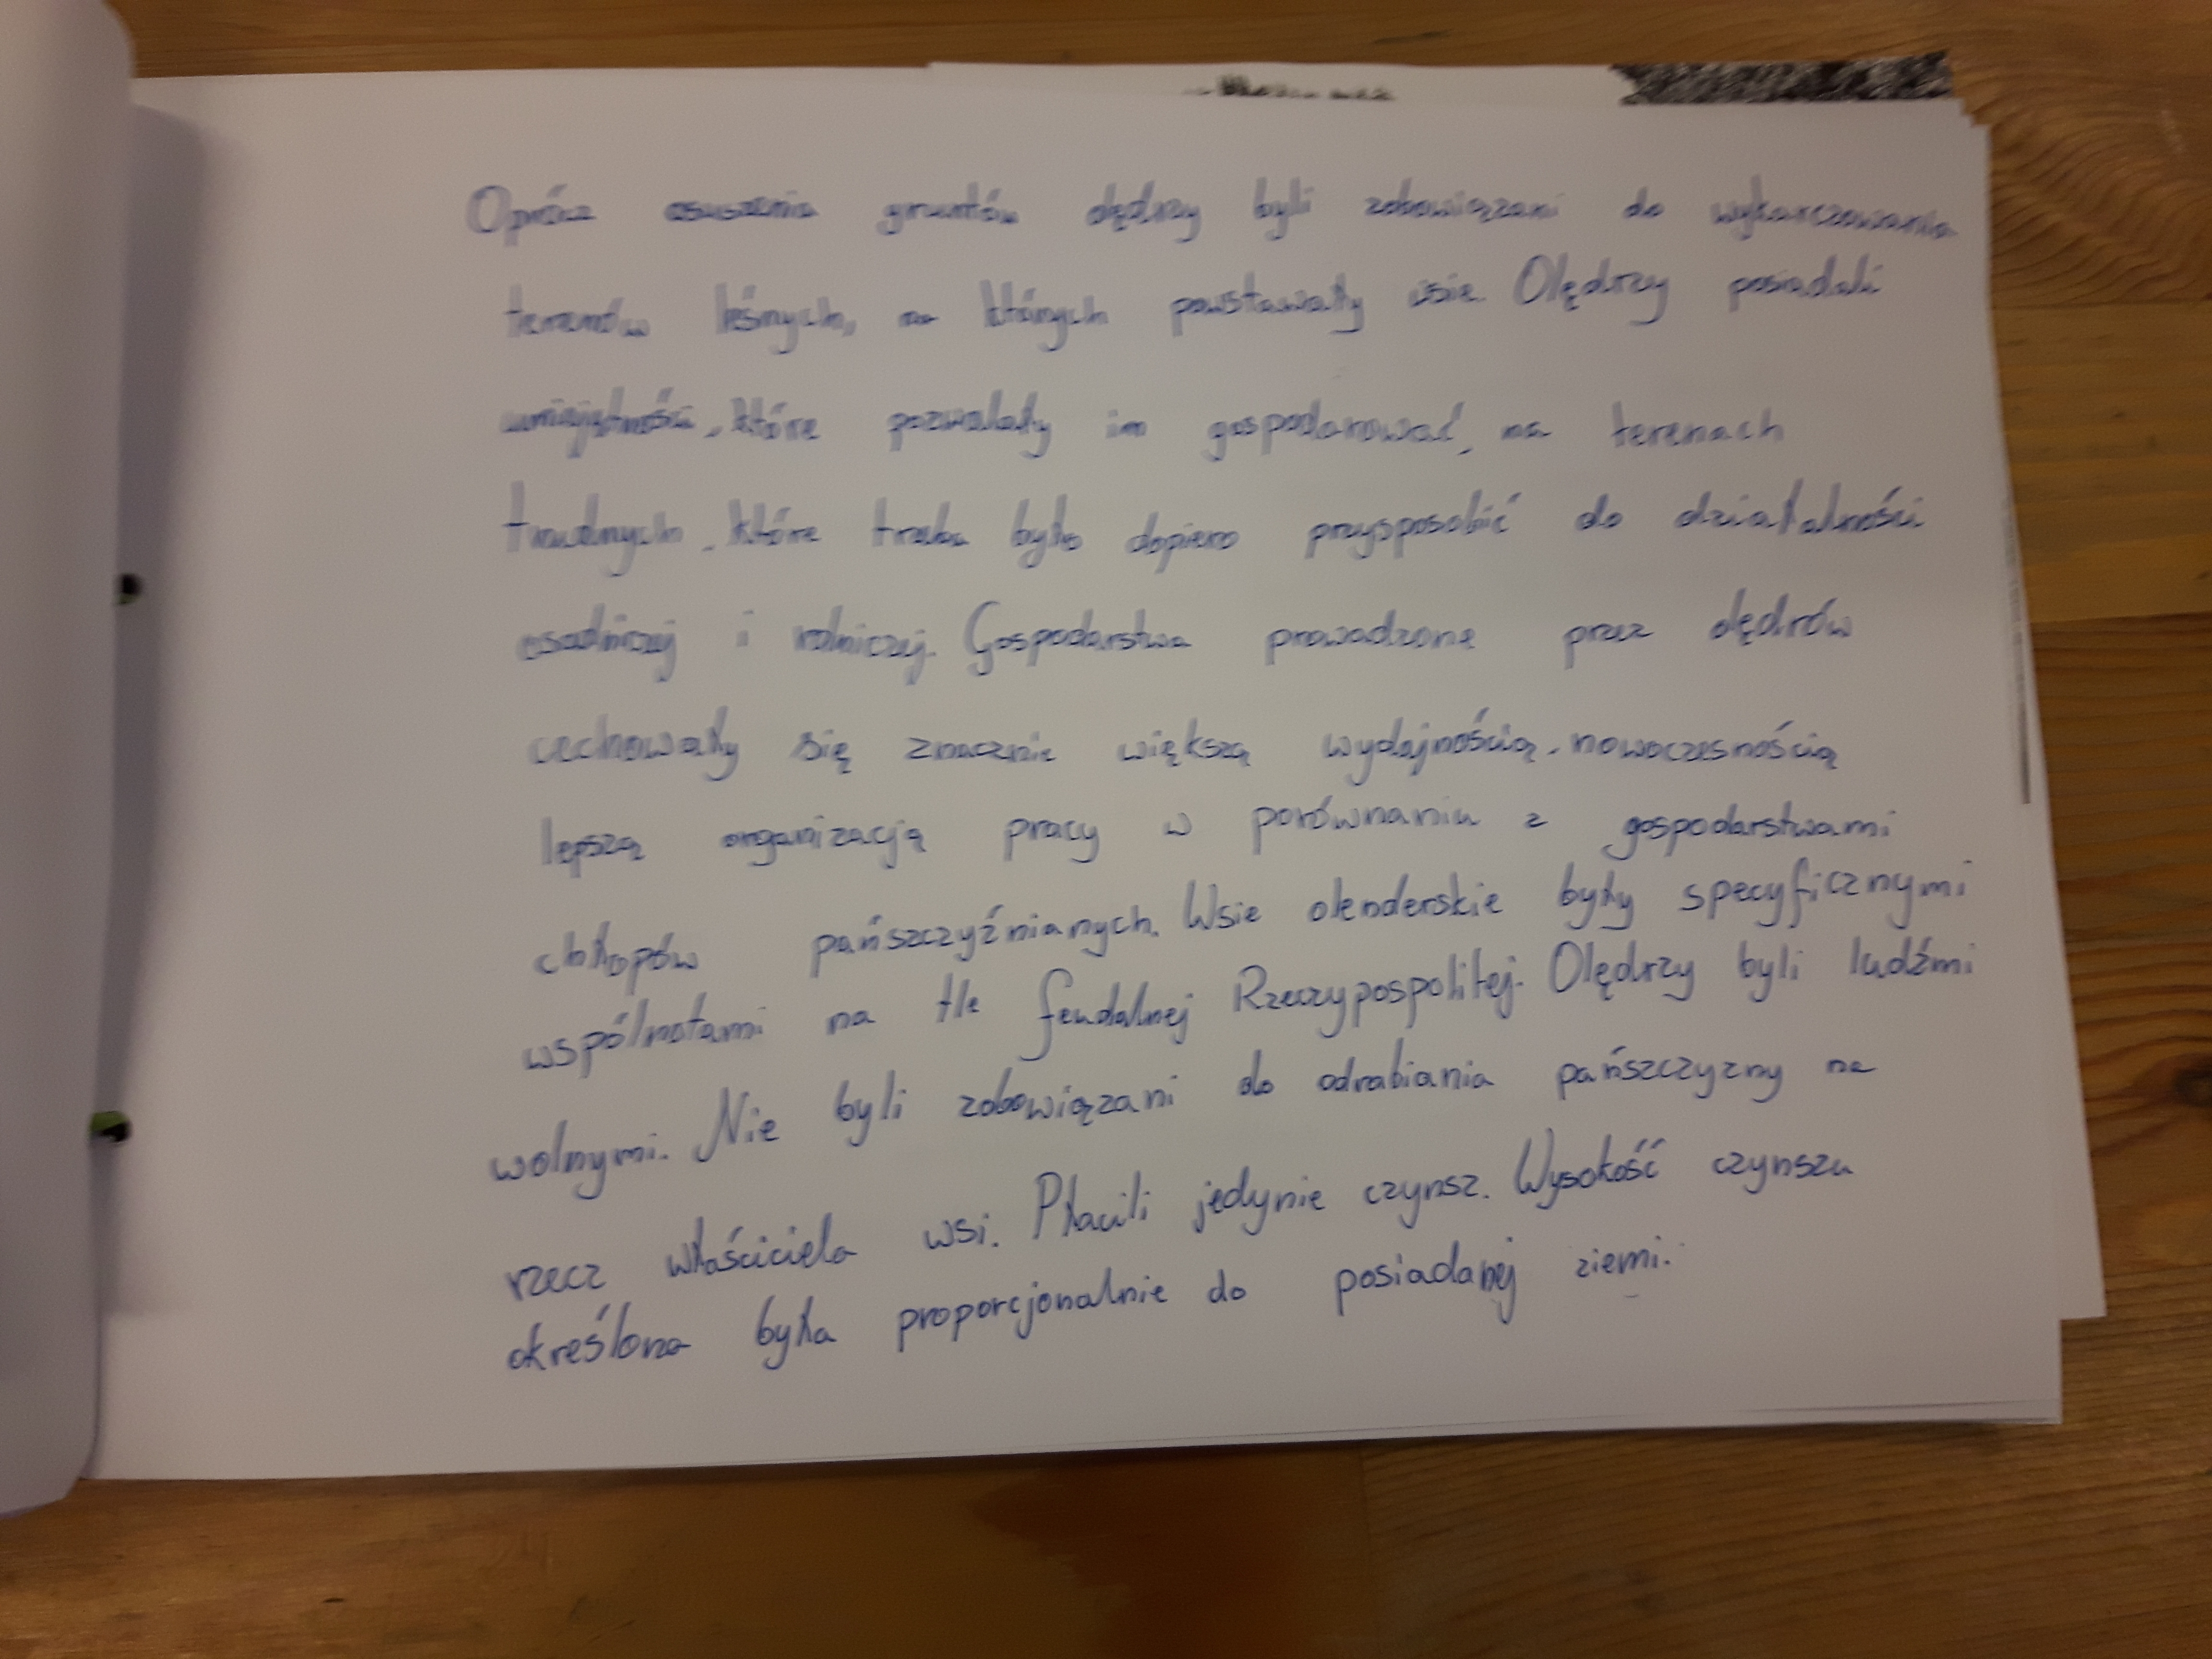 Oprócz osuszenia gruntów olędrzy byli zobowiązani do wykarczowania
terenów leśnych, na których powstawały wsie. Olędrzy posiadali
umiejętności, które pozwalały im gospodarować, na terenach
trudnych, które trzeba było dopiero przysposobić do działalności
osadniczej i rolniczej. Gospodarstwa prowadzone przez olędrów
cechowały się znacznie większą wydajnością, nowoczesnością
lepszą organizacją pracy w porównaniu z gospodarstwami
chłopów pańszczyźnianych. Wsie olenderskie były specyficznymi
wspólnotami na tle feudalnej Rzeczypospolitej. Olędrzy byli ludźmi
wolnymi. Nie byli zobowiązani do odrabiania pańszczyzny na
rzecz właściciela wsi. Płacili jedynie czynsz. Wysokość czynszu
określona była proporcjonalnie do posiadanej ziemi.